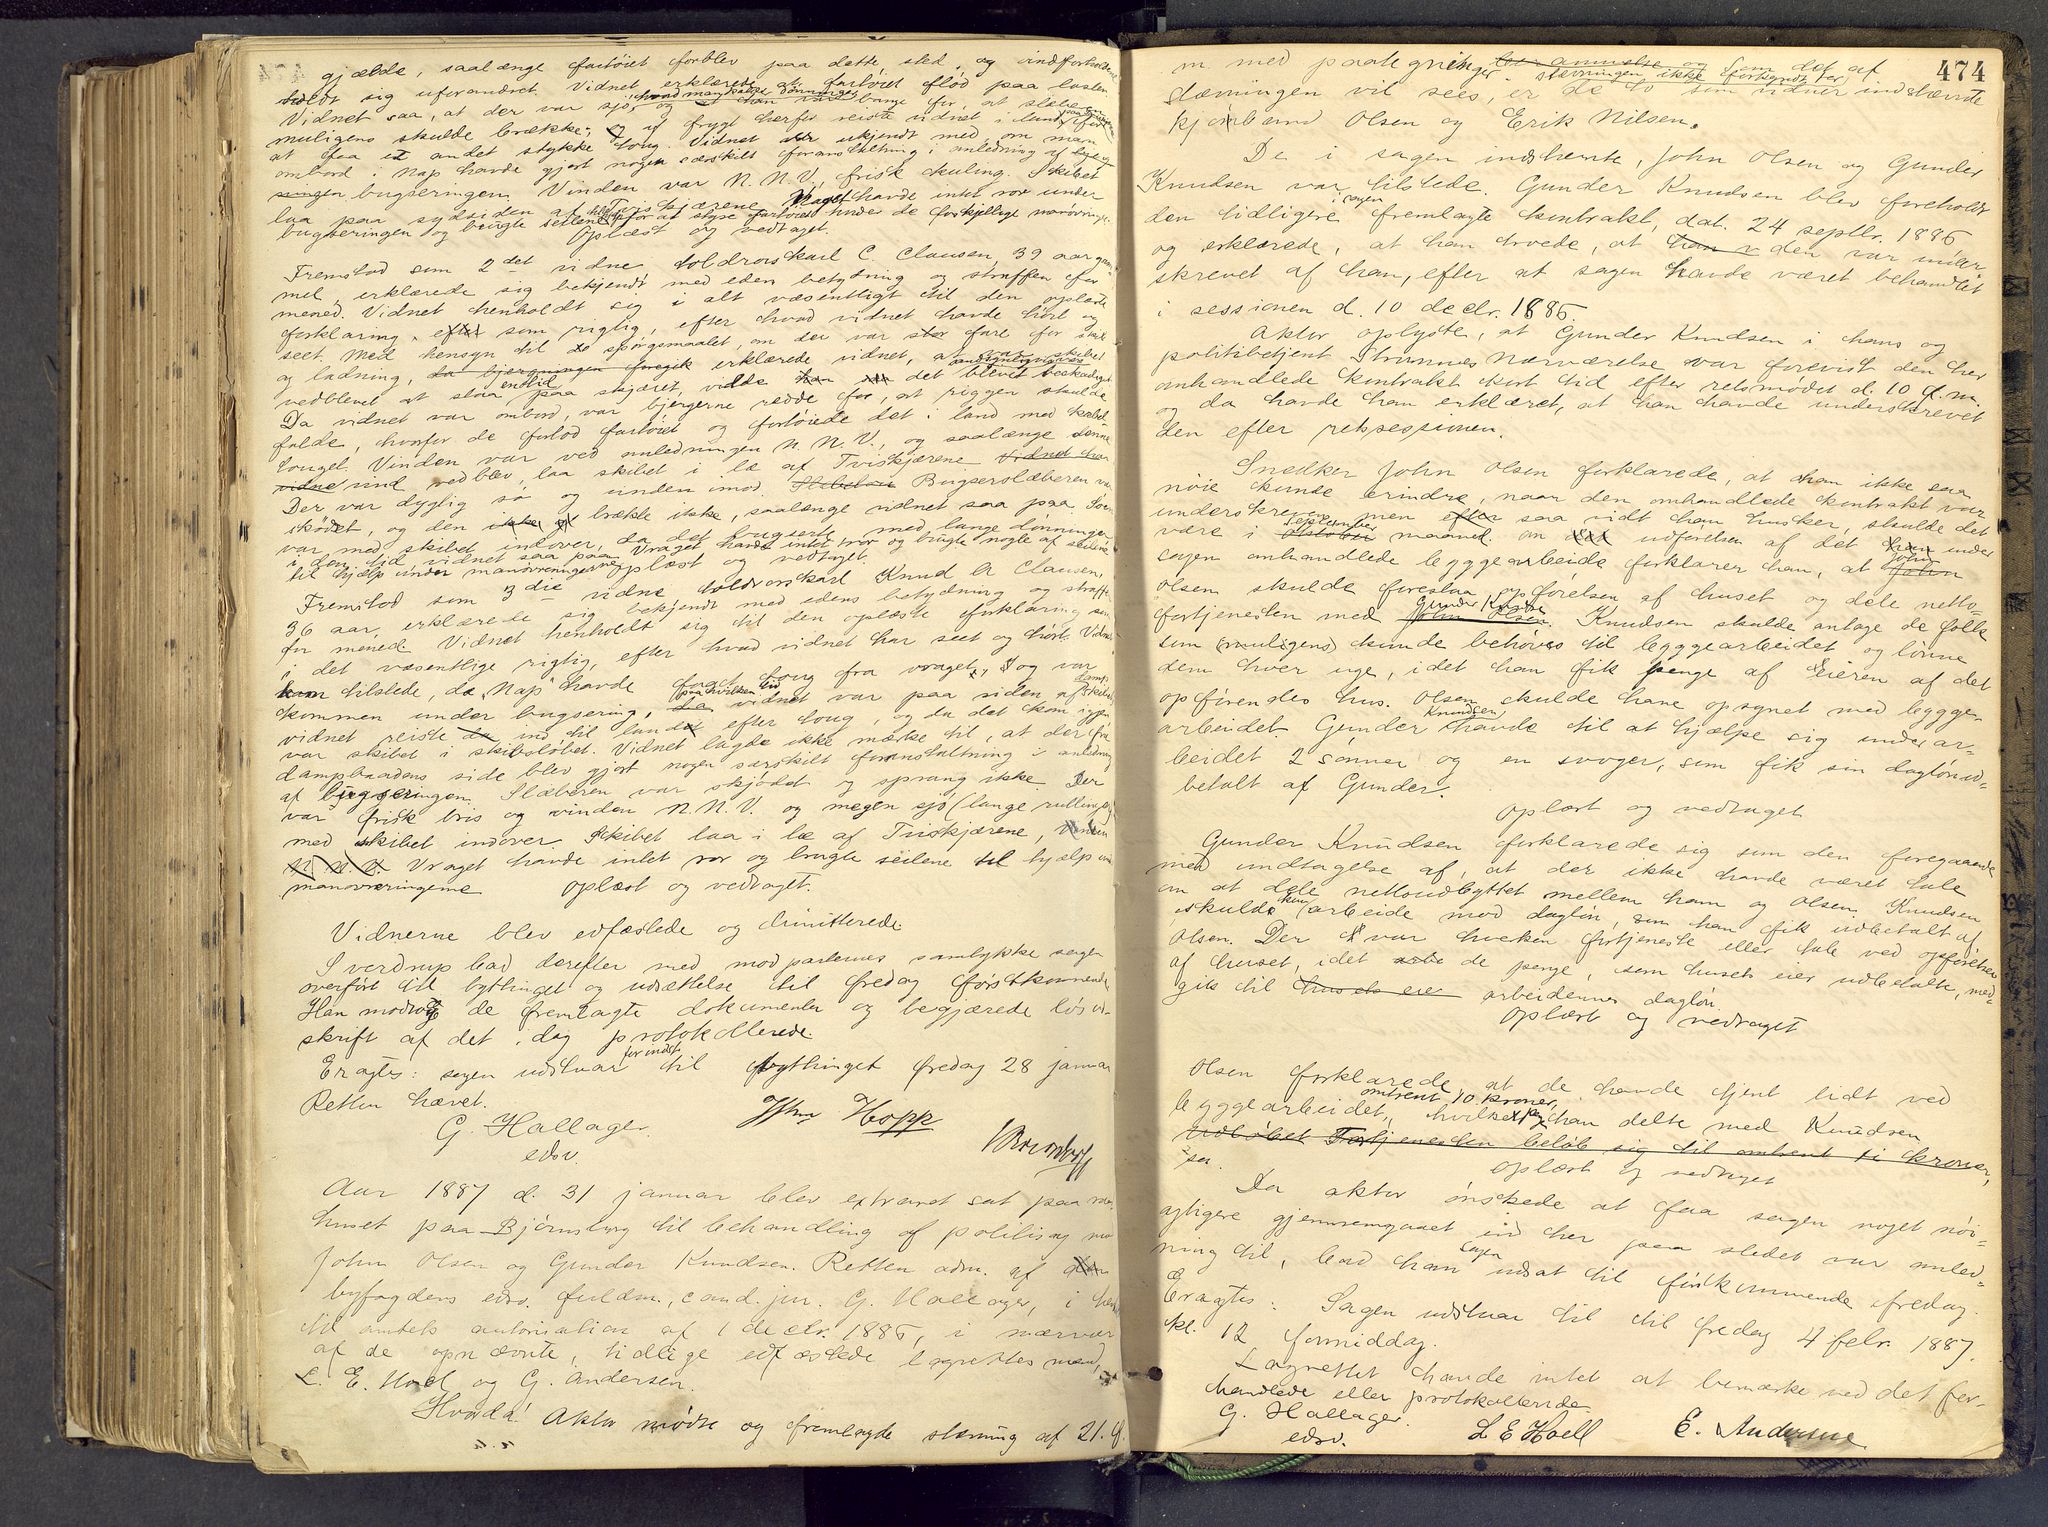 gjælde, saalænge fartøiet forblev paa dette sted, og vindforholdene
holdt sig uforandret. Vidnet erklærede at fartøiet flød paa lasten.
Vidnet saa, at der var sjø, hvad man kalder dønninger og var bange for, at slæberen
muligens skulde brække, og af frygt herfor reiste vidnet i land for
at faa et andet stykke toug. Vidnet er ukjendt med, om man
ombord i Nap havde gjort nogen særskilt foranstaltning i anledning af
bugseringen. Vinden var N.N.V., frisk kuling. Skibet
laa paa sydsiden af Tviskjærene. Vraget havde intet ror under
bugseringen og brugte seilene for at styre fartøiet under de forskjellige manøvringer.
Oplæst og vedtaget.
Fremstod som 2det vidne toldroerskarl C. Clausen, 39 aar gam-
mel, erklærede sig bekjendt med eden betydning og straffen for
mened. Vidnet henholdt sig i alt væsentligt til den oplæste
forklaring, som rigtig, efter hvad vidnet havde hørt og
seet. Med hensyn til spørgsmaalet, om der var stor fare for skib
og ladning, da bjærgningen foregik erklærede vidnet, at var skibet
vedblevet at staa paa skjæret, vilde det blevet beskadiget.
Da vidnet var ombord, var bjergerne redde for, at riggen skulde
falde, hvorfor de forlod fartøiet og fortøiede det i land med kabel-
touget. Vinden var ved anledningen N.N.V., og saalænge denne
vind vedblev, laa skibet i læ af Tviskjærene
Der var dygtig sø og vinden imod. Bugserslæberen var
skødet, og den brækte ikke, saalænge vidnet saa paa. Søen
var med skibet indover, da det bugserte med lange dønninger
i den tid vidnet saa paa. Vraget havde intet ror og brugte nogle af seilene
til hjælp under manøvreringerne oplæst og vedtaget.
Fremstod som 3die vidne toldroerskarl Knud A Clausen,
36 aar, erklærede sig bekjendt med edens betydning og straffen
for mened. Vidnet henholdt sig til den oplæste forklaring som
i det væsentlige rigtig, efter hvad vidnet har seet og hørt. Vidnet
kom tilstede, da "Nap" havde faaet toug fra vraget, og var
kommen under bugsering, paa hvilken tid vidnet var paa siden af skibet
vidnet reiste ind til landet efter toug, og da det kom igjen
var skibet i skibsløbet. Vidnet lagde ikke mærke til, at der fra
dampbaadens side blev gjort nogen særskilt foranstaltning i anledning
af bugseringen. Slæberen var skjødet og sprang ikke. Der
var frisk bris og vinden N.N.V. og megen sjø (lange rullinger)
med skibet indover. Skibet laa i læ af Tviskjærene,
N.N.V. Vraget havde intet ror og brugte seilene til hjælp under
manøvreringerne oplæst og vedtaget.
Vidnerne blev edfæstede og dimitterede.
Sverdrup bad derefter med modpartens samtykke sagen
overført til bythinget og udsættelse til fredag førstkommende
Han modtog de fremlagte dokumenter og begjærede løs ud-
skrift af det i dag protokollerede.
Eragtes: sagen udstaar for indst. til bythinget fredag 28 januar
Retten hævet.
G. Hallager. John Hopp
edsv.
Aar 1887 d. 31 januar blev extraret sat paa raad-
huset paa Bjørnsborg til behandling af politisag mod
John Olsen og Gunder Knudsen. Retten adm. af
byfogdens edsv. fuldm., cand. jur. G. Hallager, i hen-
til amtets autorisation af 1 decbr. 1886, i nærvær
af de opnævnte, tidlige edfæstede lagrettesmænd,
L. E. Hoel og G. Andersen.
Hvorda! Aktor mødte og fremlagde stævning af 21. d.
474
m med paategninger. Som det af
stævningen vil sees, er de to som vidner indstævnte
Kjøband Olsen og Erik Nilsen.
De i sagen indstævnte, John Olsen og Gunder
Knudsen var tilstede. Gunder Knudsen blev foreholdt
den tidligere i sagen fremlagte kontrakt, dat. 24 septbr. 1886
og erklærede, at han troede, at den var under-
skrevet af ham, efter at sagen havde været behandlet
i sessionen d. 10 decbr. 1886.
Aktor oplyste, at Gunder Knudsen i hans og
politibetjent Strumnes nærværelse var forevist den her
omhandlede kontrakt kort tid efter retsmødet d. 10 d. m.
og da havde han erklæret, at han havde underskrevet
den efter retssessionen.
Snedker John Olsen forklarede, at han ikke saa
nøie kunde erindre, naar den omhandlede kontrakt var
underskreven, men saa vidt han husker, skulde det
være i september maaned. Om udførelsen af det under
sagen omhandlede byggearbeide forklarer han, at John
Olsen skulde forestaa opførelsen af huset og dele netto-
fortjenesten med Gunder Knudsen. Knudsen skulde antage de folk
som (muligens) kunde behøves til byggearbeidet og lønne
dem hver uge, idet han fik penge af Eieren af det
opførendes hus. Olsen skulde have opsynet med bygge-
arbeidet Gunder Knudsen havde til at hjælpe sig under ar-
beidet 2 sønner og en svoger, som fik sin dagløn ud-
betalt af Gunder.
oplæst og vedtaget
Gunder Knudsen forklarede sig som den foregaaende
med undtagelse af, at der ikke havde været tale
om at dele nettoudbyttet mellem ham og Olsen. Knudsen
skulde kun arbeide mod dagløn, som han fik udbetalt af
Olsen. Der var hverken fortjeneste eller tale ved opførelsen
af huset, idet de penge, som husets eier udbetalte, med-
gik til husets eier arbeidernes dagløn.
oplæst og vedtaget
Olsen forklarede, at de havde tjent lidt ved
byggearbeidet, omtrent 10 kroner, hvilke penge han delte med Knudsen
Udløbet Fortjenesten beløb sig til omtrent ti kroner,
oplæst og vedtaget
Da aktor ønskede at faa sagen noget nøi-
agtigere gjennemgaaet end her paa stedet var anled-
ning til, bad han sagen udsat til førstkommende fredag.
Eragtes: Sagen udstaar til til fredag 4 febr. 1887.
kl. 12 formiddag.
Lagrettet havde intet at bemærke ved det for-
handlede eller protokollerede.
G. Hallager. L E Hoell E. Andersen
edsv.